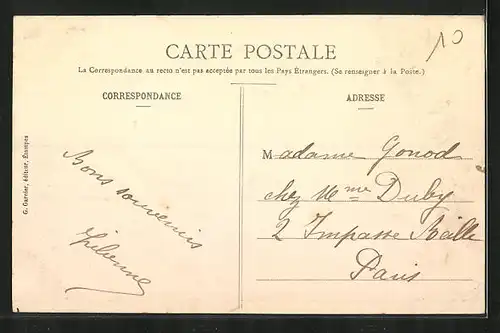 10
CARTE POSTALE
La Correspondance au recto n'est pas acceptée par tous les Pays Étrangers. (Se renseigner à la Poste.)
CORRESPONDANCE
Bons souvenirs
ADRESSE
Madame Gonod
chez Mme Duby
2 Impasse Reille
Paris
G. Garnier, éditeur, Étampes